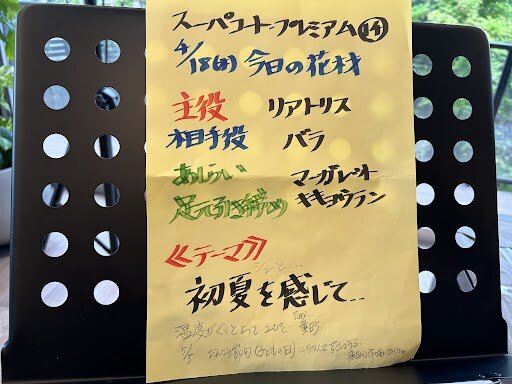 スーパーコート・プレミアム⑭
4/18(月) 今日の花材
主役 リアトリス
相手役 バラ
あしらい マーガレット
足元引き締め キキョウラン
≪テーマ≫
初夏を感じて..
温度がぐっと上って 20℃
5/5 (こどもの日)